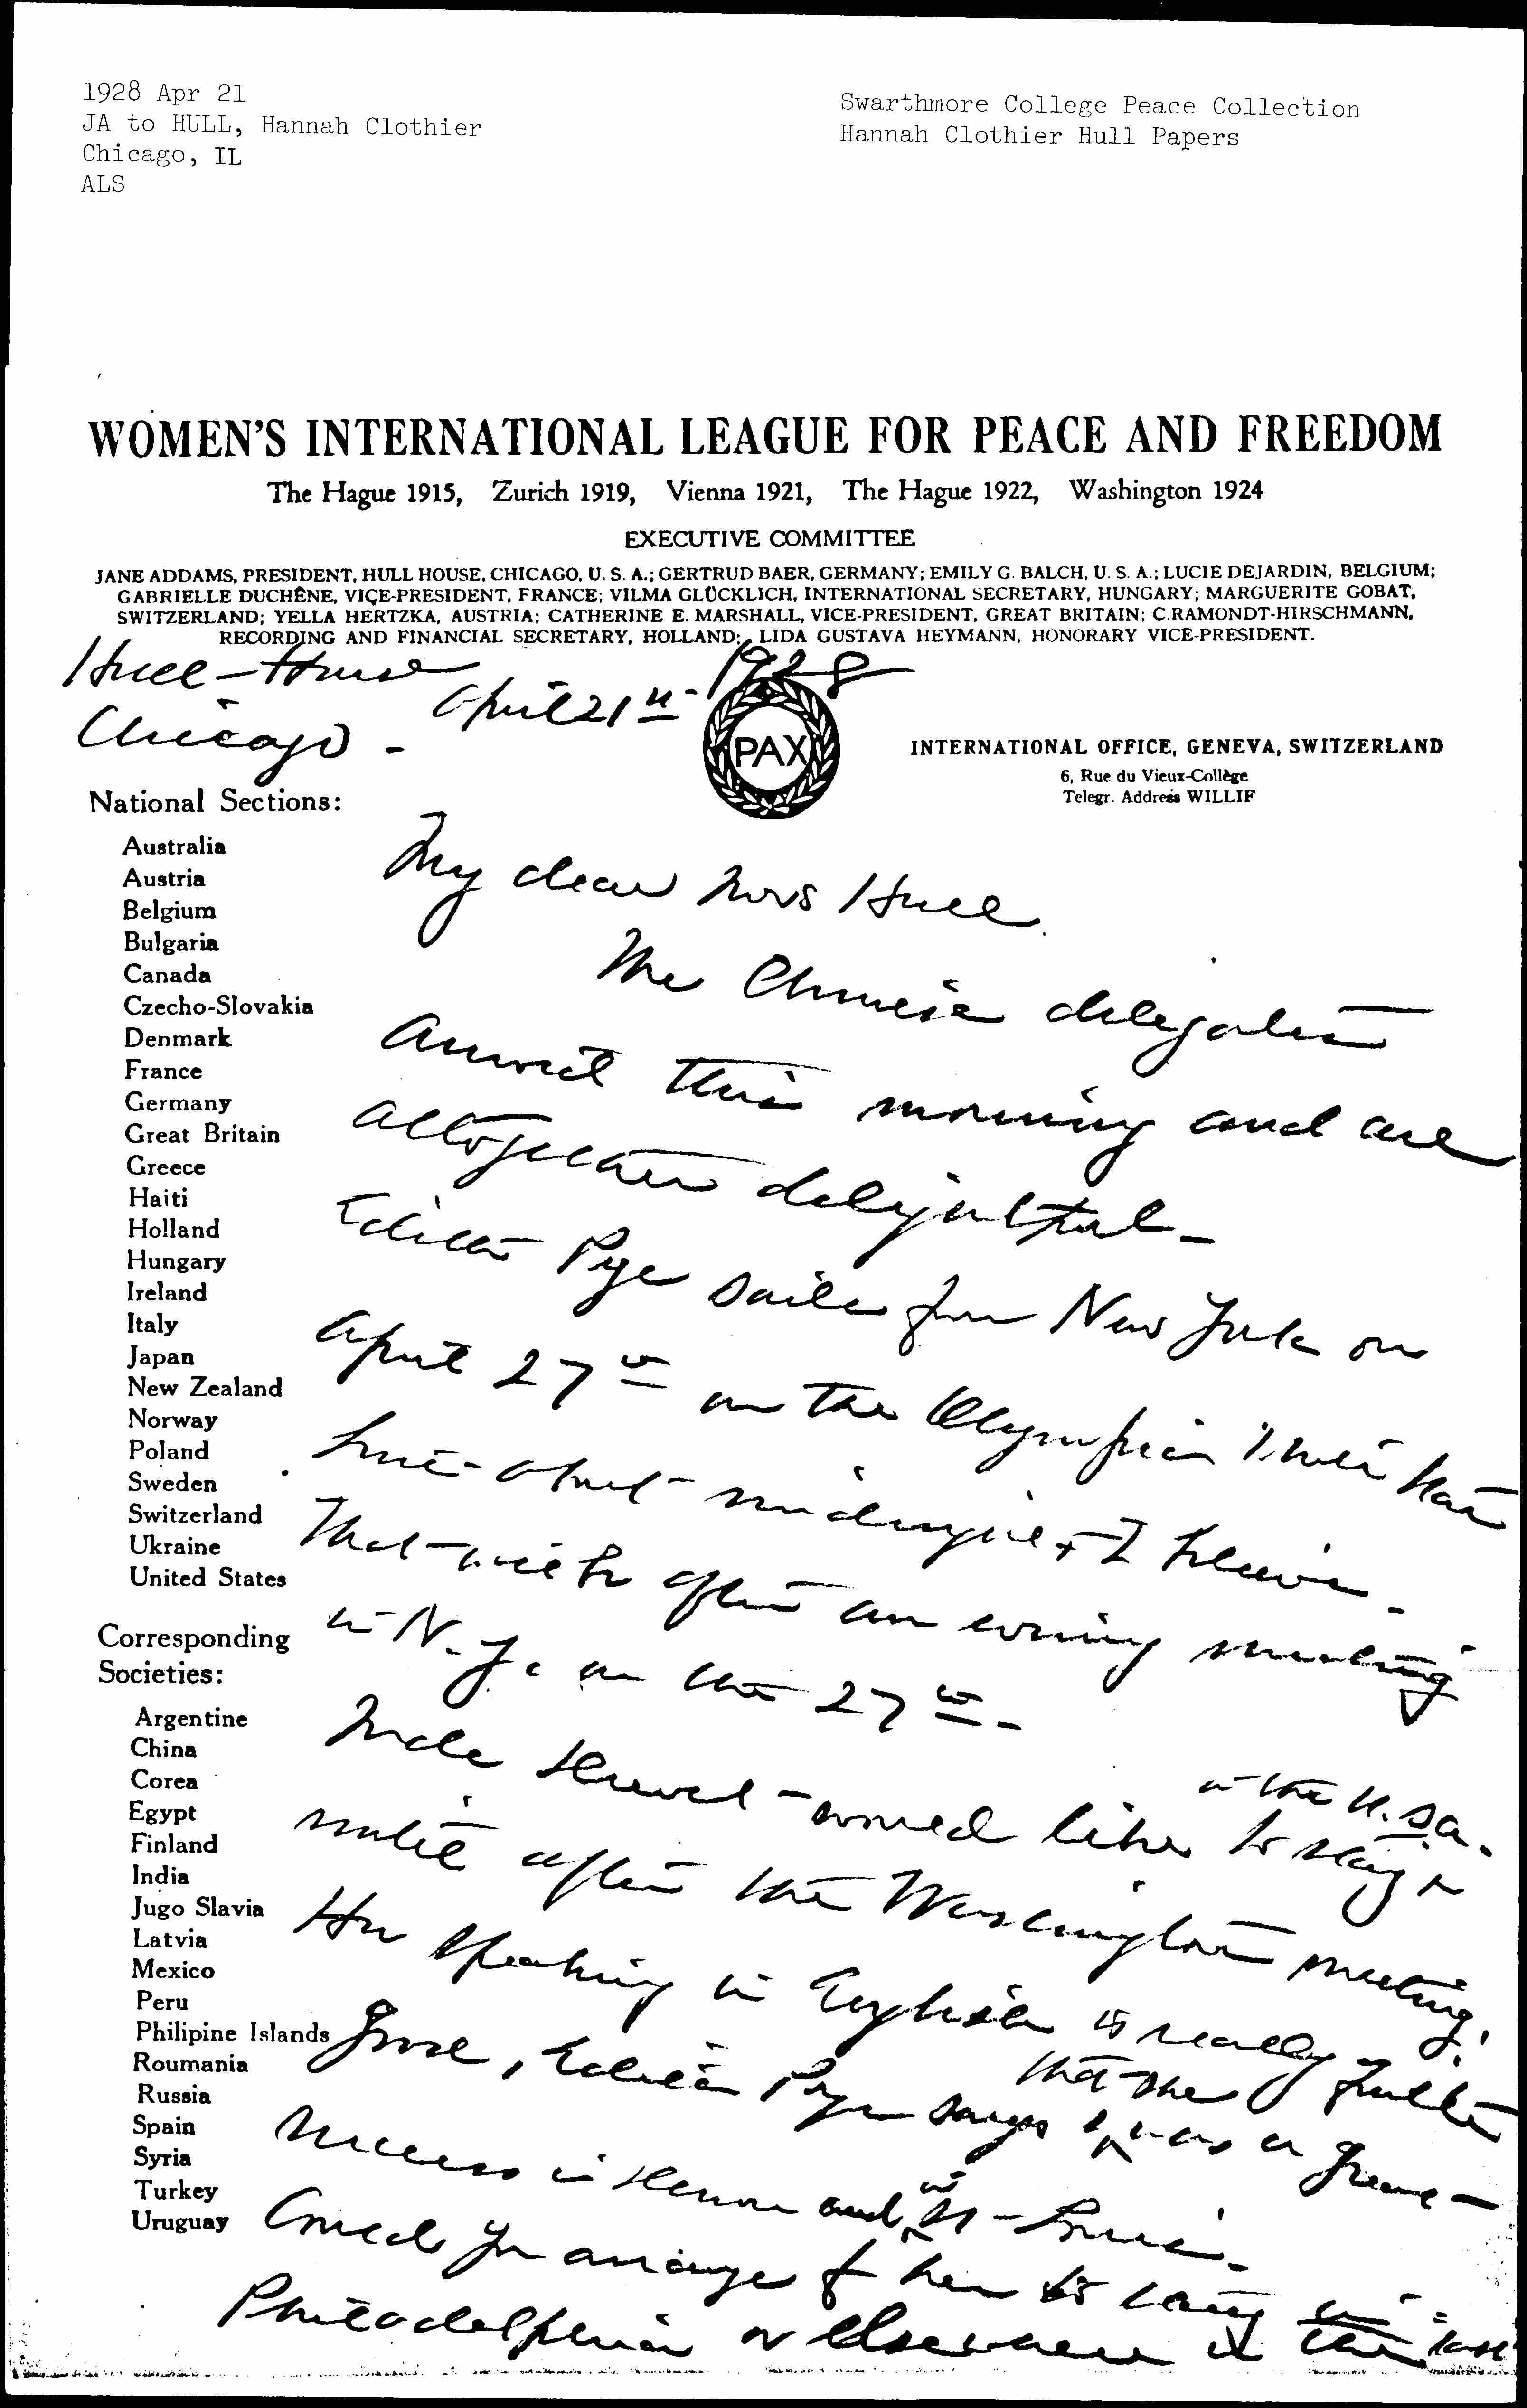 1928 Apr 21
JA to HULL, Hannah Clothier
Chicago, IL
ALS
Swarthmore College Peace Collection
Hannah Clothier Hull Papers
WOMEN'S INTERNATIONAL LEAGUE FOR PEACE AND FREEDOM
The Hague 1915, Zurich 1919, Vienna 1921, The Hague 1922, Washington 1924
EXECUTIVE COMMITTEE
JANE ADDAMS, PRESIDENT, HULL HOUSE, CHICAGO, U. S. A.; GERTRUD BAER, GERMANY; EMILY G. BALCH, U. S. A.; LUCIE DEJARDIN, BELGIUM;
GABRIELLE DUCHÊNE, VIÇE-PRESIDENT, FRANCE; VILMA GLÜCKLICH, INTERNATIONAL SECRETARY, HUNGARY; MARGUERITE GOBAT,
SWITZERLAND; YELLA HERTZKA, AUSTRIA; CATHERINE E. MARSHALL, VICE-PRESIDENT, GREAT BRITAIN; C.RAMONDT-HIRSCHMANN,
RECORDING AND FINANCIAL SECRETARY, HOLLAND; LIDA GUSTAVA HEYMANN, HONORARY VICE-PRESIDENT.
Hull-House
Chicago - April 21st - 1928
PAX
INTERNATIONAL OFFICE, GENEVA, SWITZERLAND
6, Rue du Vieux-Collège
Telegr. Address WILLIF
National Sections:
Australia
Austria
Belgium
Bulgaria
Canada
Czecho-Slovakia
Denmark
France
Germany
Great Britain
Greece
Haiti
Holland
Hungary
Ireland
Italy
Japan
New Zealand
Norway
Poland
Sweden
Switzerland
Ukraine
United States
Corresponding
Societies:
Argentine
China
Corea
Egypt
Finland
India
Jugo Slavia
Latvia
Mexico
Peru
Philipine Islands
Roumania
Russia
Spain
Syria
Turkey
Uruguay
My dear Mrs Hull.
The Chinese delegates
arrived this morning and are
altogether delightful -
Edith Pye sails for New York on
April 27th on the Olympic
about midnight & I
That will be after an evening meeting
in N.Y. on the 27th -
Mlle would like to stay in the U.S.A.
after the Washington meeting.
Her speaking in English is really quite
good, Edith Pye says that she was a great
success in Geneva and in St - Louis.
Could you arrange for her to stay in
Philadelphia or elsewhere in the last